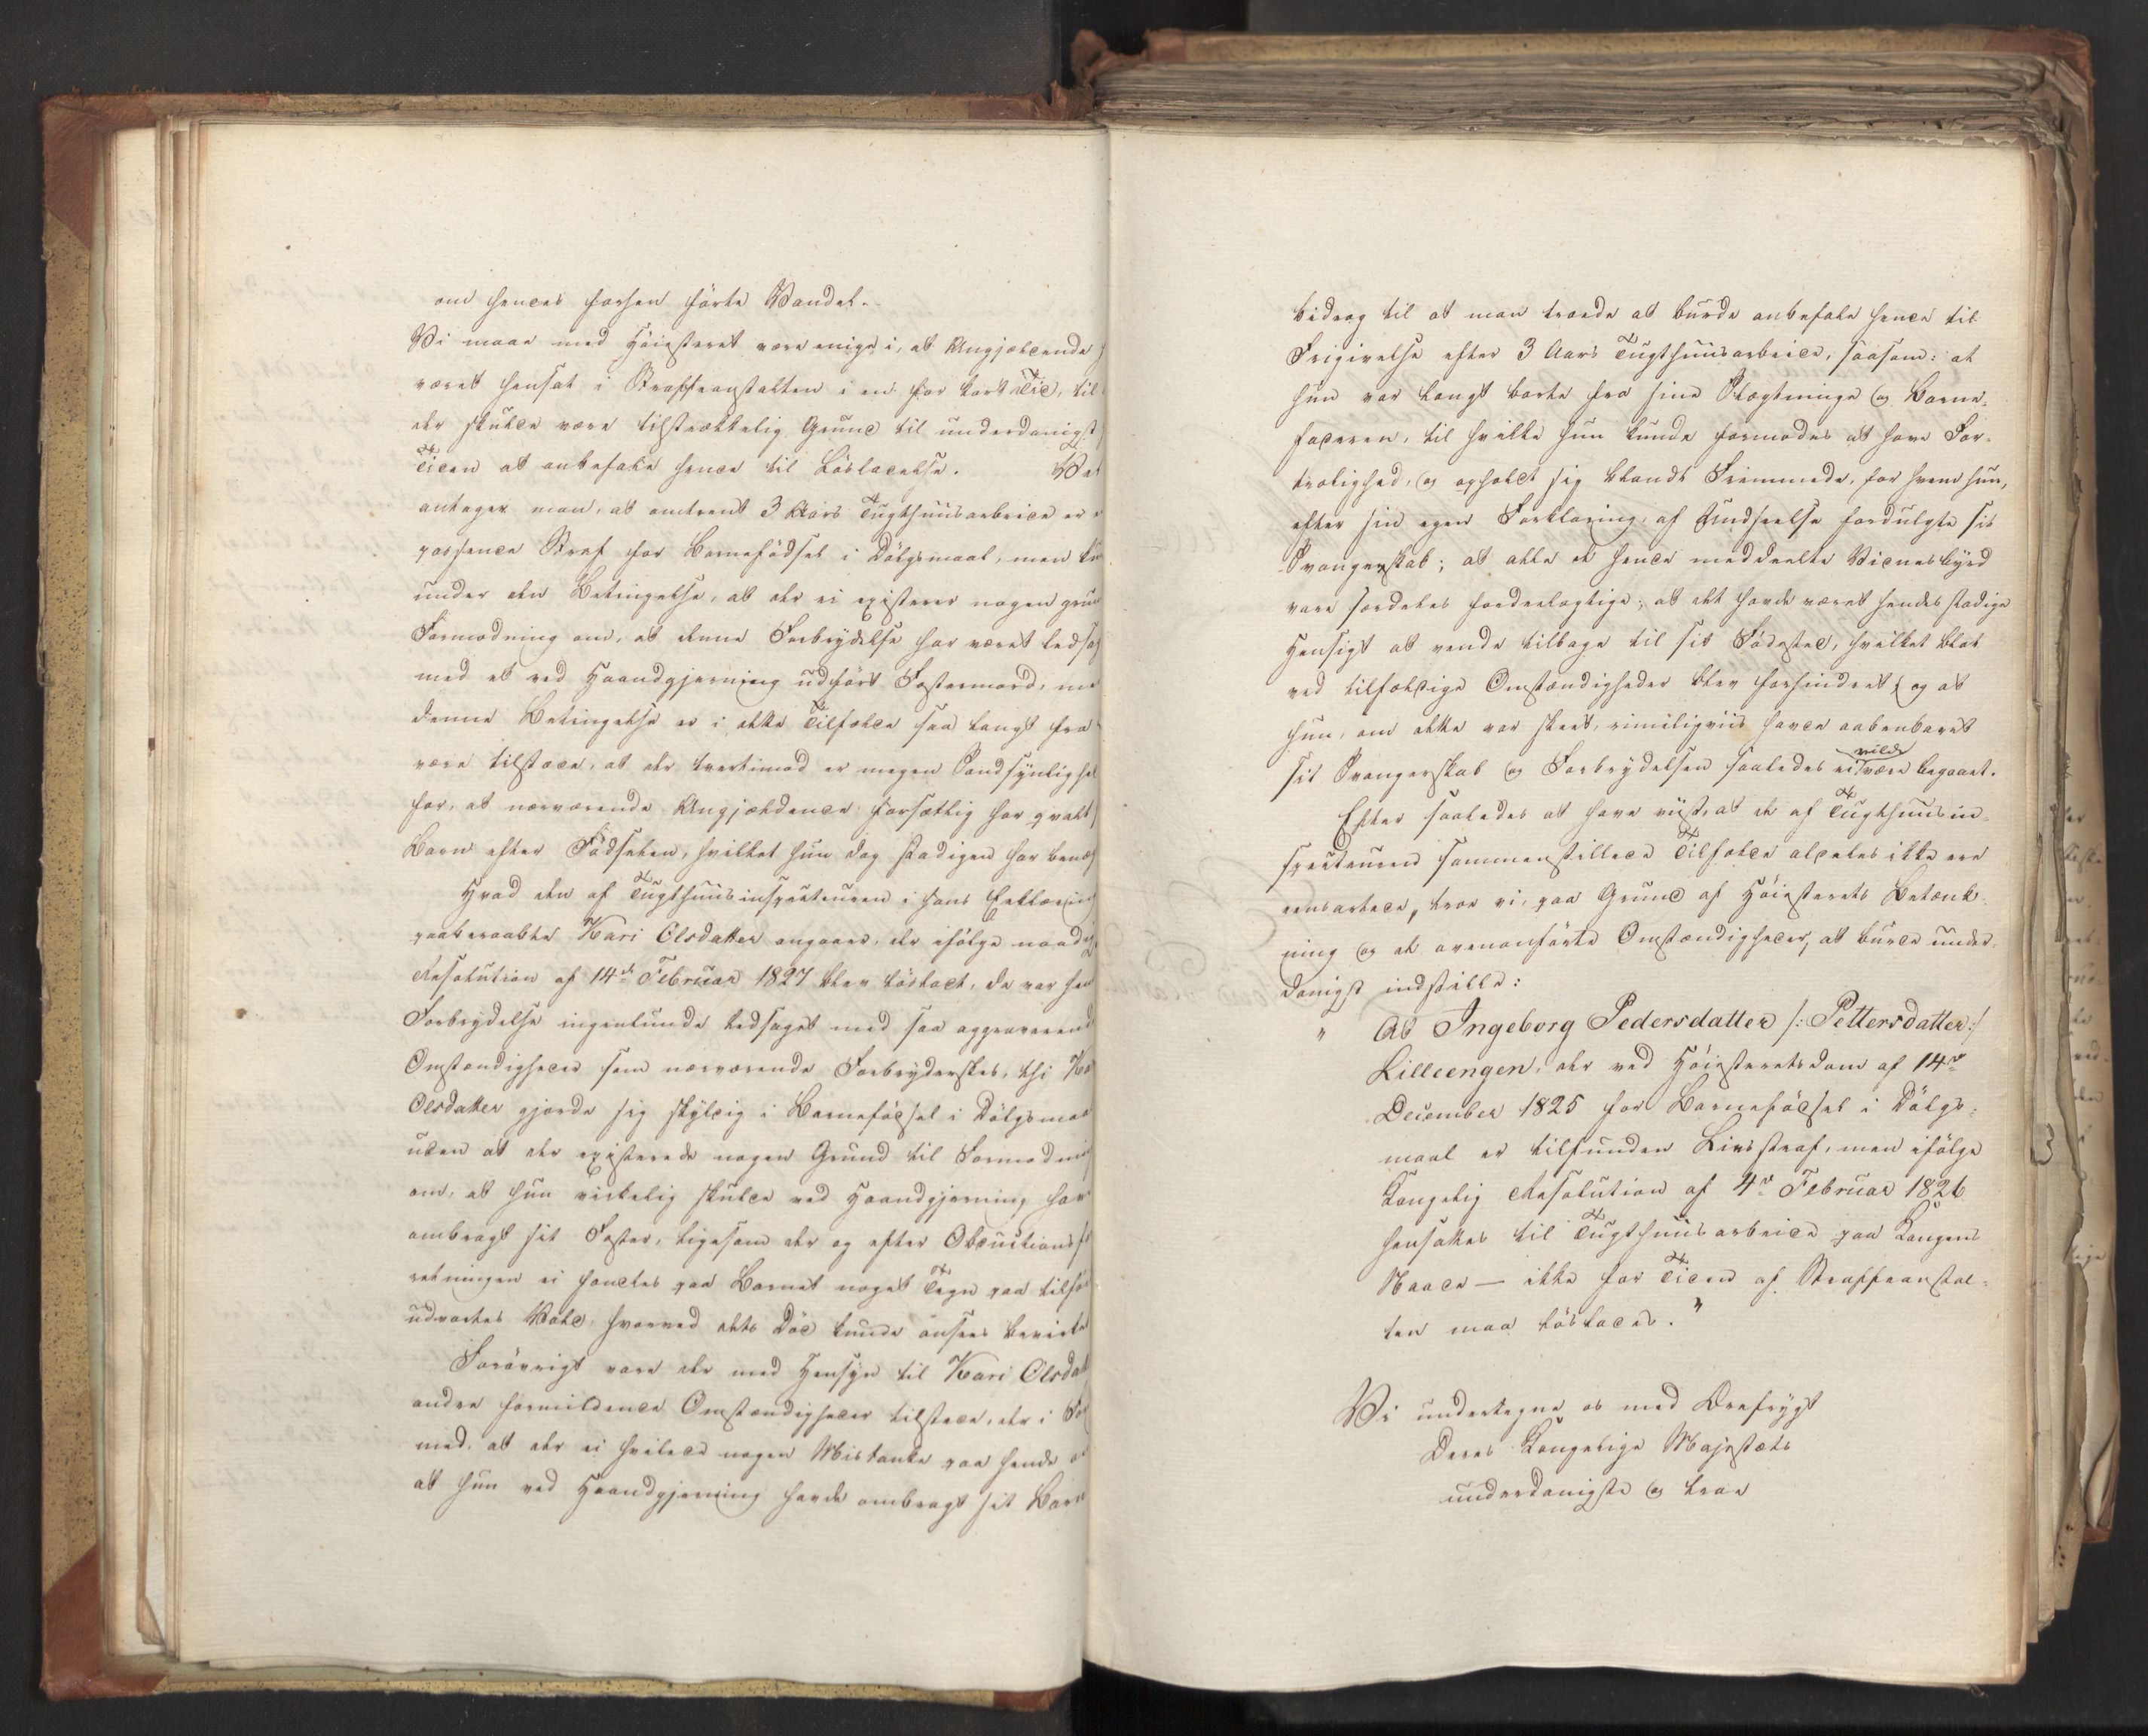 om hendes forhen førte Vandel.
Vi maae med Høiesteret være enige i, at Angjældende
været hensat i Straffeanstalten i en for kort Tid, til
der skulde være tilstrækkelig Grund til underdanigst
Tiden at anbefale hende til Løsladelse. Vel
antager man, at omtrent 3 Aars Tugthuusarbeide er
passende Straf for Barnefødsel i Dølgsmaal, men
under den Betingelse, at der ei existerer nogen
Formodning om, at denne Forbrydelse har været
med et ved Haandgjerning udført Fostermord,
denne Betingelse er i dette Tilfælde saa langt fra
være tilstæde, at der tvertimod er megen
for, at nærværende Angjældende forsætlig har qvalt
Barn efter Fødselen, hvilket hun dog stadigen har
Hvad den af Tugthuusinspecteuren i hans
paaberaabte Kari Olsdatter angaaer, der ifølge
Resolution af 14de Februar 1827 blev løsladt, da var
Forbrydelse ingenlunde ledsaget med saa
Omstændigheder som nærværende Forbryderskes, thi
Olsdatter gjorde sig skyldig i Barnefødsel i
uden at der existerede nogen Grund til
om, at hun virkelig skulde ved Haandgjerning
ombragt sit Foster, ligesom der og efter
ei fandtes paa Barnet noget Tegn paa
udvortes Vold, hvorved dets Død kunde ansees
Forøvrigt vare der med Hensyn til Kari
andre formildende Omstændigheder tilstæde, der i
med, at der ei hvilede nogen Mistanke paa hende
at hun ved Haandgjerning havde ombragt sit Barn
bidrog til at man troede at burde anbefale hende til
Frigivelse efter 3 Aars Tugthuusarbeide, saasom: at
hun var langt borte fra sine Slægtninge og Barne-
faderen, til hvilke hun kunde formodes at have For-
trolighed, og opholdt sig blandt Fremmede, for hvem hun,
efter sin egen Forklaring, af Undseelse fordulgte sit
Svangerskab; at alle de hende meddeelte Vidnesbyrd
vare særdeles fordeelagtige; at det havde været hendes stadige
Hensigt at vende tilbage til sit Fødested, hvilket blot
ved tilfældige Omstændigheder blev forhindret; og at
hun, om dette var skeet, rimeligviis havde aabenbaret
sit Svangerskab og Forbrydelsen saaledes ei vilde være begaaet.
Efter saaledes at have viist, at de af Tugthuusin-
specteuren sammenstillede Tilfælde aldeles ikke ere
eensartede, troe vi, paa Grund af Høiesterets Betænk-
ning og de ovenanførte Omstændigheder, at burde under-
danigst indstille:
" At Ingeborg Pedersdatter /: Pettersdatter :/
Lilleengen, der ved Høiesteretsdom af 14de
December 1825 for Barnefødsel i Dølgs-
maal er tilfunden Livsstraf, men ifølge
Kongelig Resolution af 4de Februar 1826
hensattes til Tugthuusarbeide paa Kongens
Naade — ikke for Tiden af Straffeanstal-
ten maa løslades. "
Vi undertegne os med Ærefrygt
Deres Kongelige Majestæts
underdanigste og troe